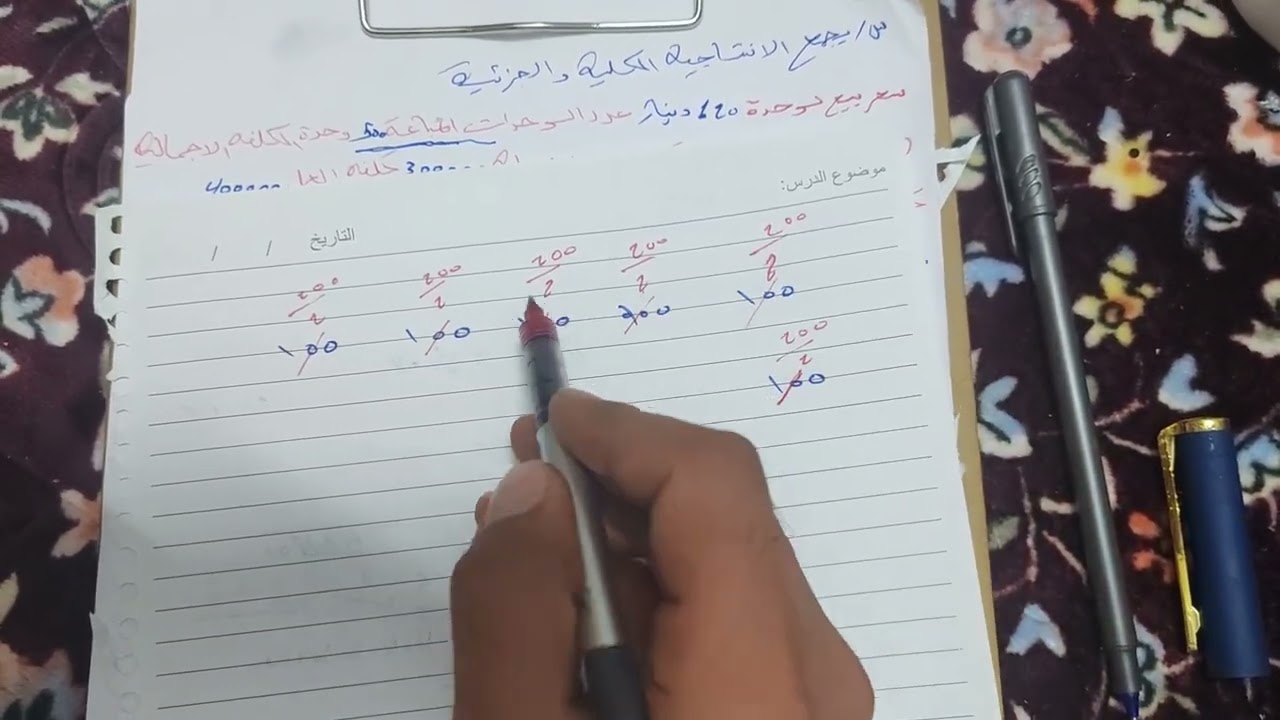 س/ يجمع الانتاجية الكلية والجزئية
سعر بيع لوحدة 120 دينار عدد الوحدات المباعة 500 وحدة الكلفة الاجمالية
300000 كلفة 400000
موضوع الدرس:
التاريخ / /
200 200 200 200 200
2 2 2 2 2
100 100 100 100 100
200
2
100